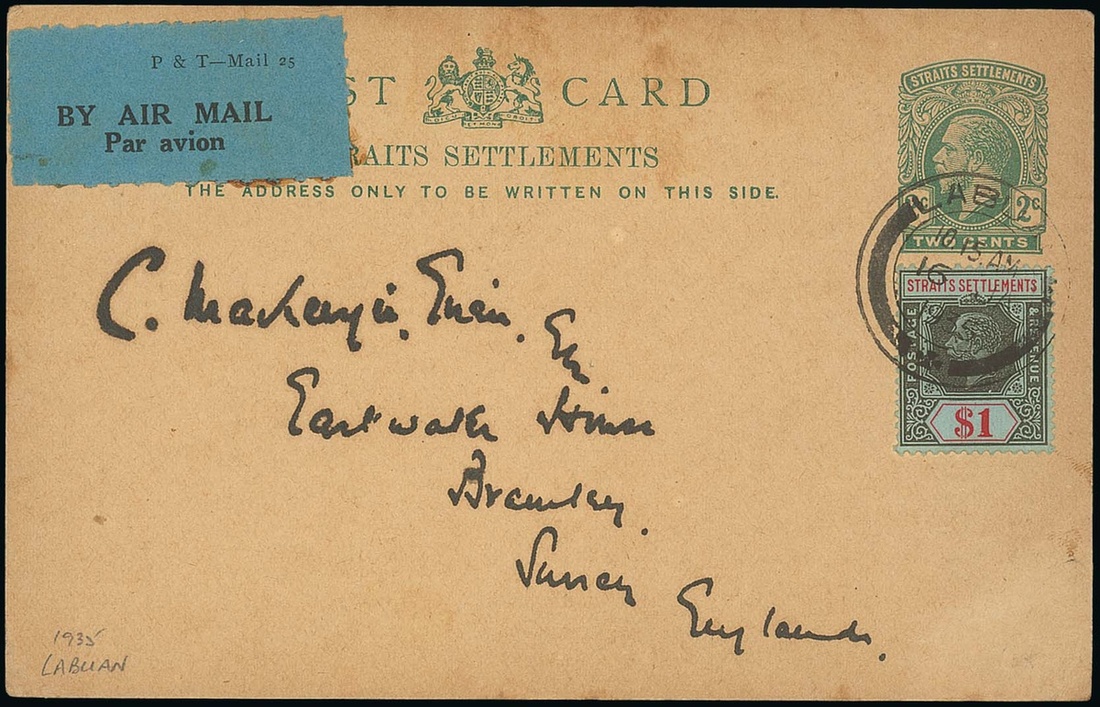 P & T—Mail 25
BY AIR MAIL
Par avion
ST CARD
RAITS SETTLEMENTS
THE ADDRESS ONLY TO BE WRITTEN ON THIS SIDE.
STRAITS SETTLEMENTS
2c
TWO CENTS
LAB
10 15 AM
16
STRAITS SETTLEMENTS
POSTAGE
& REVENUE
$1
C.
Esq
House
Bramley.
Surrey
England.
1935
LABUAN